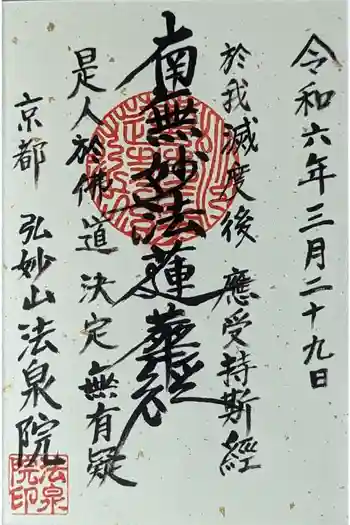 令和六年三月二十九日
於我滅度後 應受持斯經
南無妙法蓮華経
是人於佛道 決定無有疑
京都 弘妙山法泉院
法泉院印